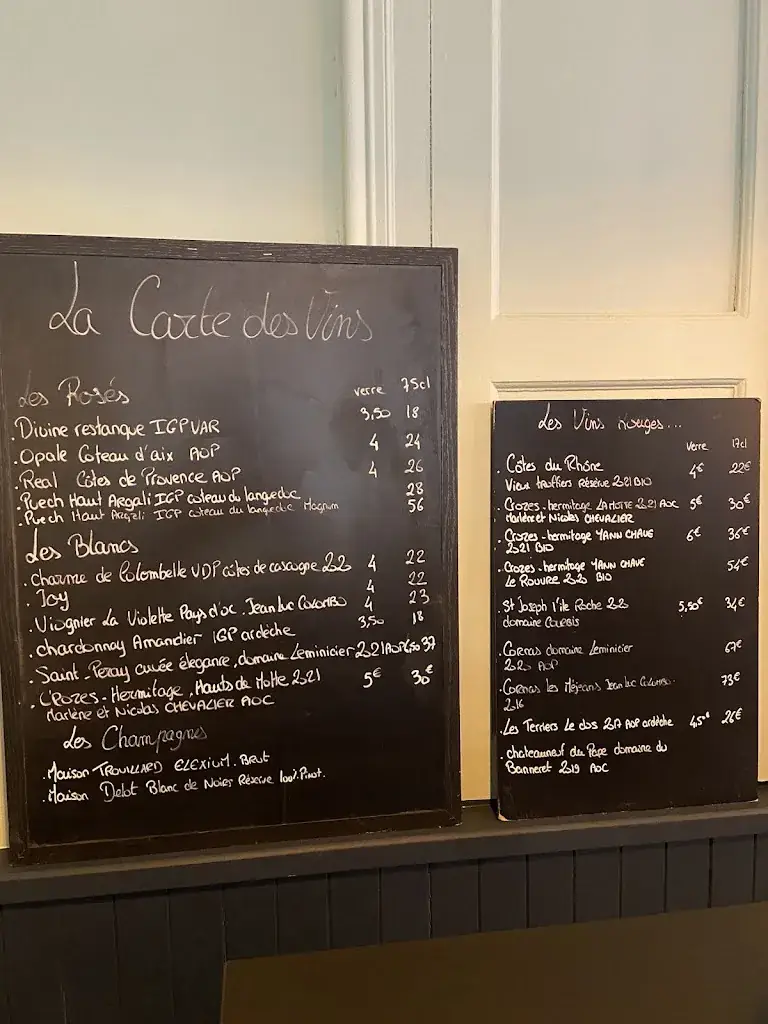 La Carte des Vins
Les Rosés verre 75cl
. Divine restanque IGP VAR 3,50 18
. Opale Coteau d'aix AOP 4 24
. Real Côtes de Provence AOP 4 26
. Puech Haut Argali IGP coteau du languedoc 28
. Puech Haut Argali IGP coteau du languedoc Magnum 56
Les Blancs
. Charme de Colombelle VDP côtes de gascogne 22 4 22
. Joy 4 22
. Viognier La Violette Pays d'oc. Jean Luc COLOMBO 4 23
. chardonnay Amandier IGP ardèche 3,50 18
. Saint-Peray cuvée élegance, domaine Leminicier 2021 AOP 6,50 37
. CROZES-Hermitage, Hauts de Motte 2021 5€ 30€
Marlène et Nicolas CHEVALIER AOC
Les Champagnes
. Maison TROUILLARD ELEXIUM. BRUT
. Maison Delot Blanc de Noirs Réserve 100% Pinot.
Les Vins Rouges...
verre 17cl
. Côtes du Rhône 4€ 22€
Vieux truffiers Réserve 2021 BIO
. Crozes-hermitage LA MOTTE 2021 AOC 5€ 30€
Marlène et Nicolas CHEVALIER
. Crozes-hermitage YANN CHAVE 6€ 36€
2021 BIO
. Crozes-hermitage YANN CHAVE 54€
Le ROUVRE 22 BIO
. St Joseph l'ile Roche 22 5,50€ 34€
domaine COURBIS
. Cornas domaine Leminicier 67€
2020 AOP
. Cornas les Méjeans Jean Luc COLOMBO. 73€
2016
. Les Terriers Le clos 2017 AOP ardèche 4,5€ 26€
. chateauneuf du Pape domaine du
Banneret 2019 AOC